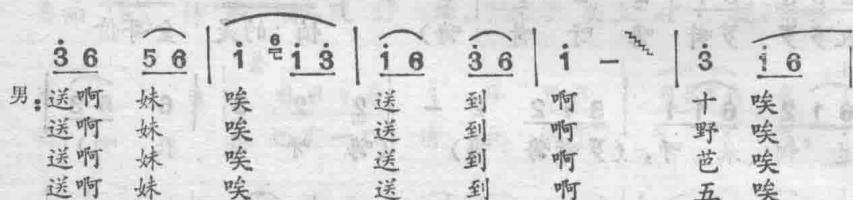 3̇ 6 5 6 | 1̇ 6 1̇ 3̇ | 1̇ 6 3̇ 6 | 1̇ – | 3̇ 1̇ 6 |
男：送啊 妹 唉 送 到 啊 十 唉
送啊 妹 唉 送 到 啊 野 唉
送啊 妹 唉 送 到 啊 芭 唉
送啊 妹 唉 送 到 啊 五 唉